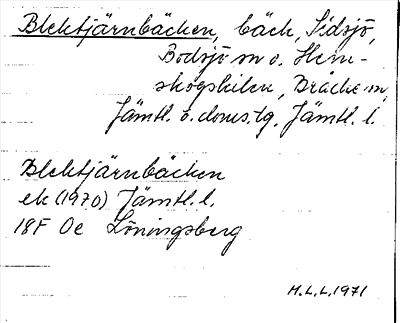 Blektjärnbäcken, bäck, Sidsjö,
Bodsjö sn o. Hem-
skogskilen, Bräcke sn,
Jämtl. ö. doms.tg. Jämtl. l.
Blektjärnbäcken
ek (1970) Jämtl. l.
18F Oe Löningsberg
H.L.L. 1971